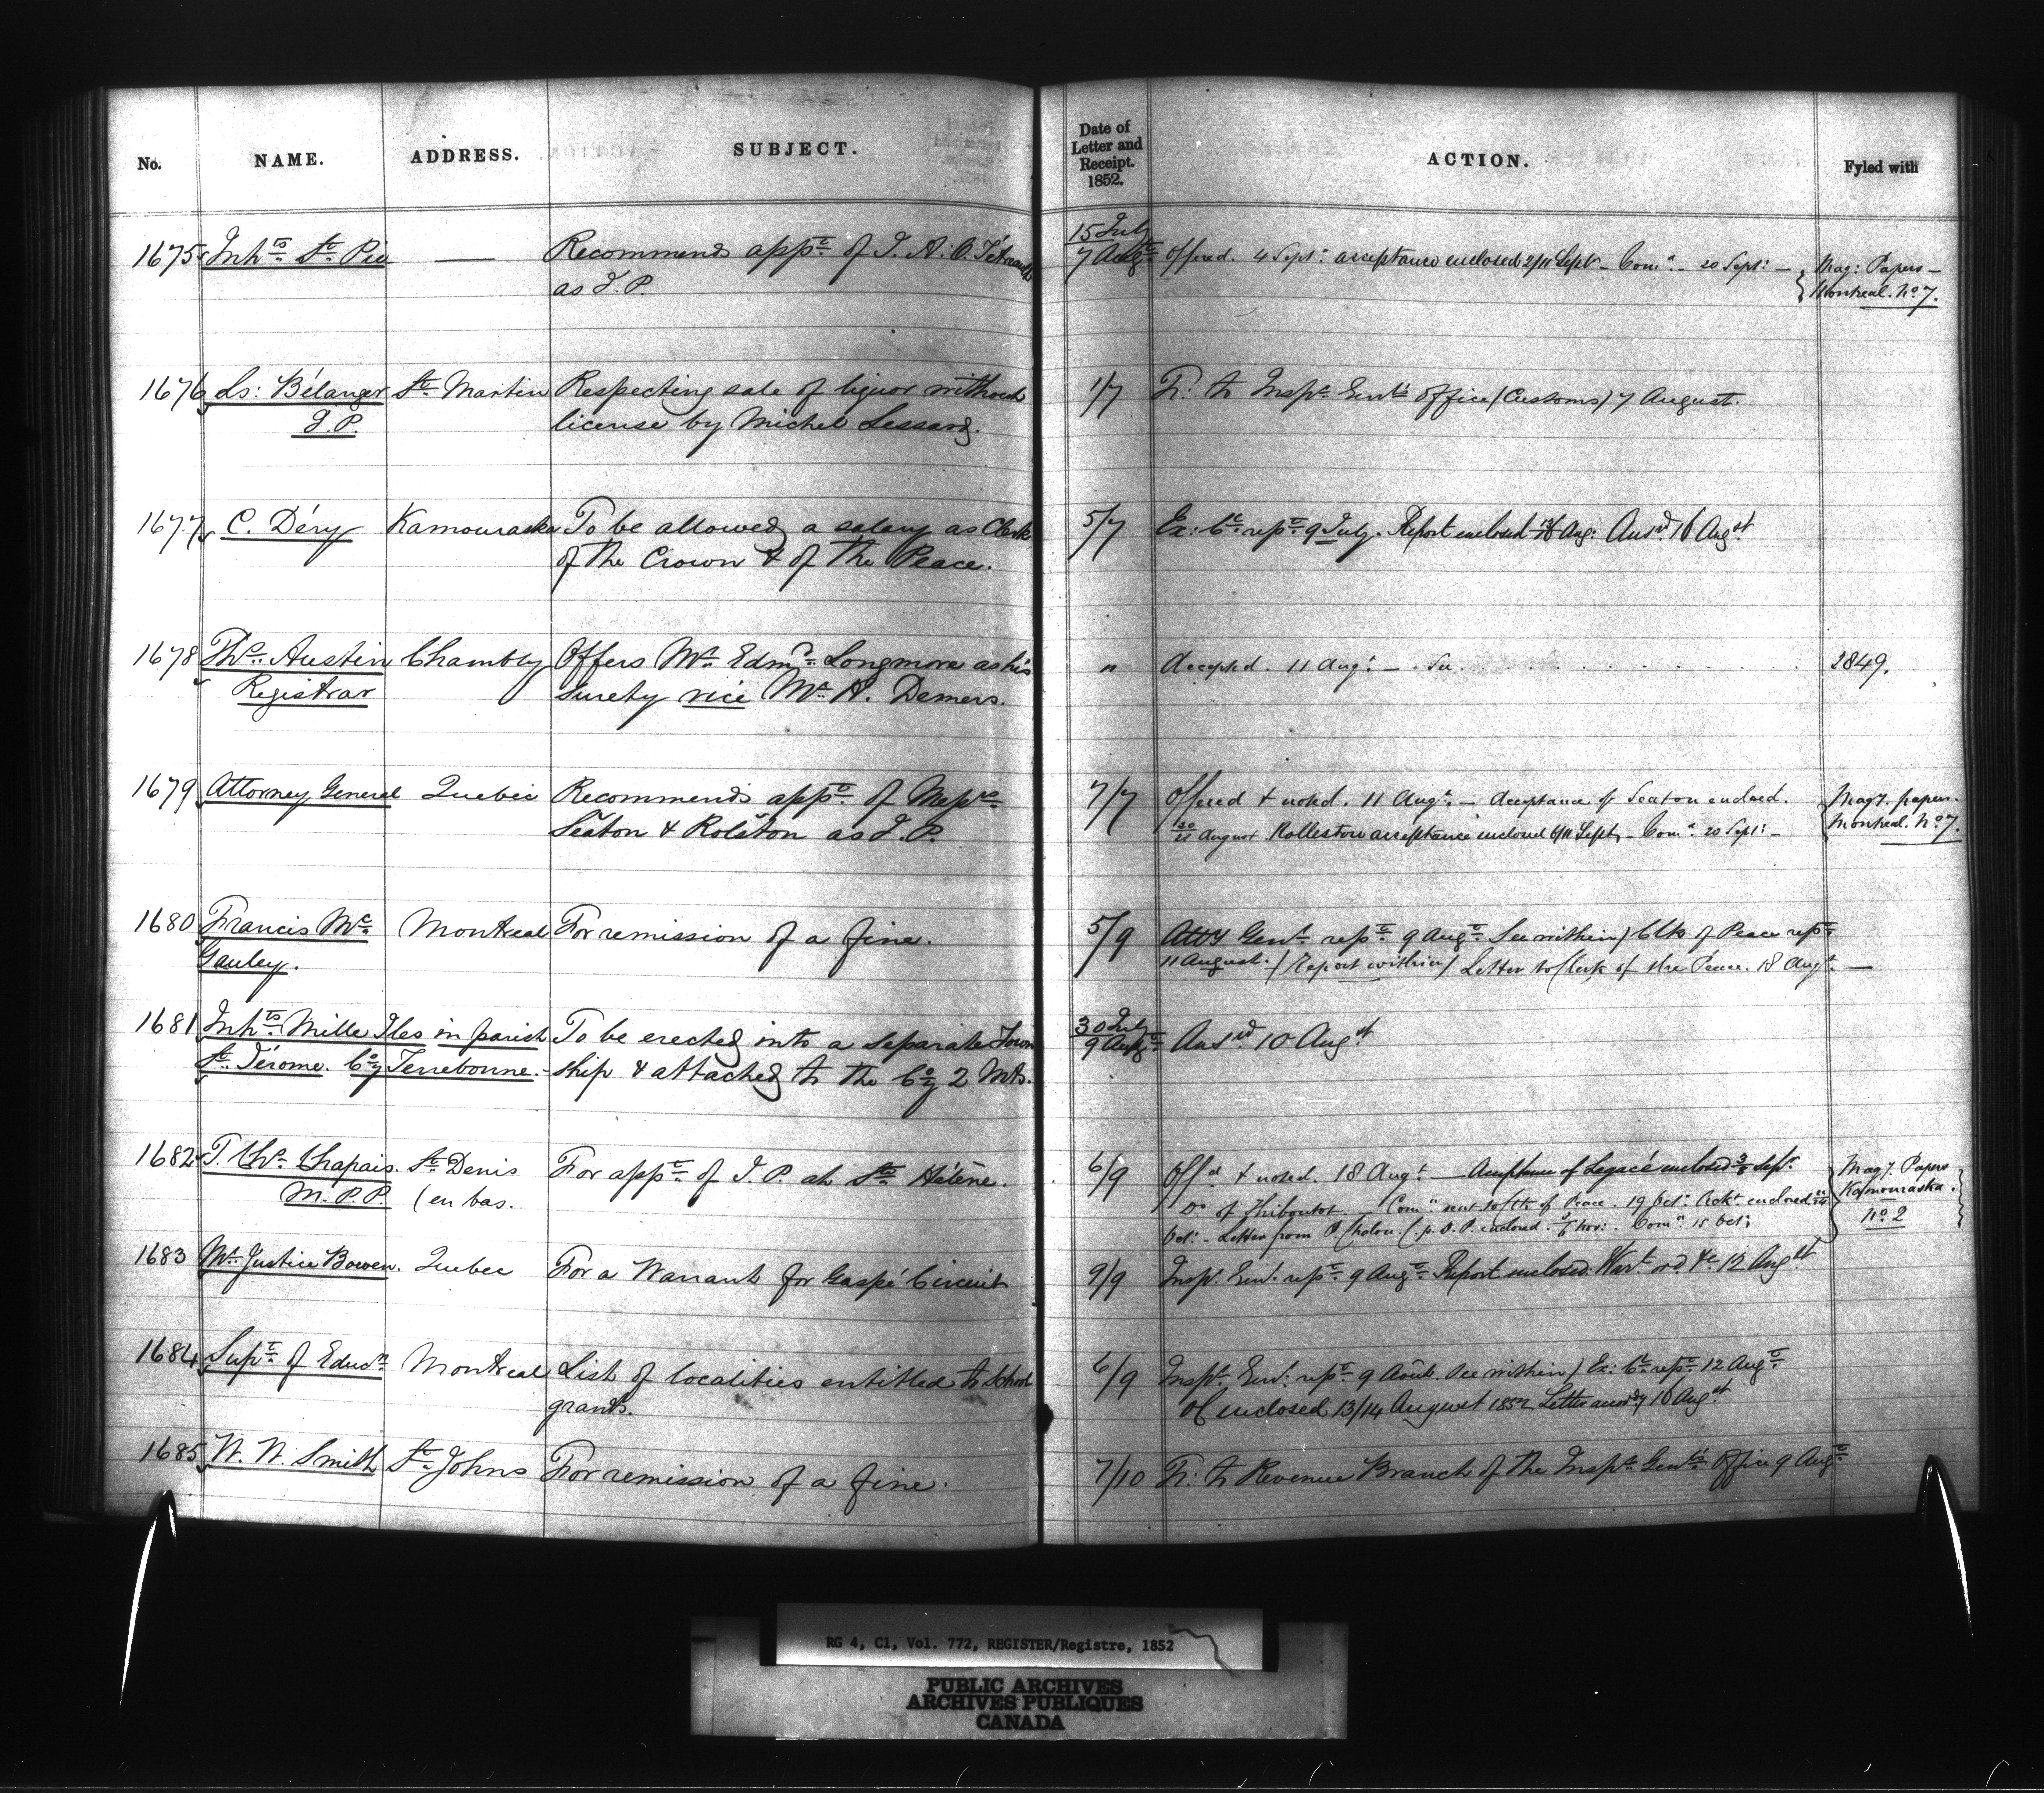 No. NAME. ADDRESS. SUBJECT. Date of Letter and Receipt. 1852. ACTION. Fyled with
1675 Inhts St. Pie — Recommends appt. of J. A. O. Tétreault 15 July
7 Augt. Offered. 4 Sept: acceptance enclosed 2/11 Sept – Comn. – 20 Sept: – Mag: Papers –
as J. P. Montreal. No 7.
1676 Ls: Bélanger St. Martin Respecting sale of liquor without 1/7 Tr: to Inspr. Genl's office (Customs) 7 August.
J. P. license by Michel Lessard.
1677 C. Déry Kamouraska To be allowed a salary as Clerk 5/7 Ex: Cl. repd. 9 July. Report enclosed Aug: Ansd. 16 Augst
of the Crown & of the Peace.
1678 Ths. Austin Chambly Offers Mr. Edmd. Longmore as his " Accepted. 11 Augt. – 2849.
Registrar surety vice Mr. A. Demers.
1679 Attorney General Quebec Recommends appt. of Messrs. 7/7 Offered & noted. 11 Augt. – Acceptance of Seaton enclosed. Mag7. papers.
Seaton & Rolston as J. P. 20/21 August Rolleston acceptance enclosed 6/11 Sept. – Comn. 20 Sept: – Montreal. No 7.
1680 Francis Mc. Montreal For remission of a fine. 5/9 Atty Genl. repd. 9 Augt. See within / Clk of Peace repd.
Gauley. 11 August. / Report within / Letter to Clerk of the Peace. 18 Augt. —
1681 Inhts Mille Iles in parish To be erected into a separate Town 30 July
9 Augt. Ansd 10 Augst
St. Jérome. Coy Terrebonne. – ship & attached to the Coy 2 Mts.
1682 J. Chs. Chapais. St. Denis For appt. of J. P. at Ste Hélène. 6/9 Offd & noted. 18 Augt — Acceptance of Legacé enclosed 3/8 Sept. Mag7. Papers
M. P. P. (en bas. Do of Thiboutot. – Comn sent to Clk of Peace. 19 Oct. Ackt enclosed Kamouraska.
Oct: – Letter from P. enclosed. Nov: . Comn. 15 Oct: No. 2
1683 Mr. Justice Bowen. Quebec For a Warrant for Gaspé Circuit 9/9 Inspr. Genl. repd. 9 Augt. Report enclosed. Wart. ord. &c 13 Augst
1684 Supt. of Educn. Montreal List of localities entitled to School 6/9 Inspr. Genl. repd. 9 Août. See within / Ex: Cl. repd. 12 Augt.
grants. OC enclosed 13/14 August 1852 Letter accordy 16 Augst
1685 W. W. Smith St. Johns For remission of a fine. 7/10 Tr: to Revenue Branch of the Inspr. Genl's Office 9 Augt.
RG 4, C1, Vol. 772, REGISTER/Registre, 1852
PUBLIC ARCHIVES
ARCHIVES PUBLIQUES
CANADA